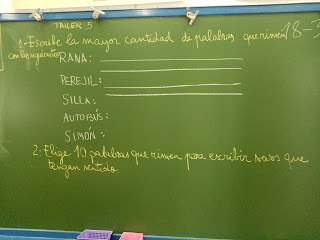 TALLER 5
1-Escribe la mayor cantidad de palabras que rimen 18-3
con las siguientes
RANA:
PEREJIL:
SILLA:
AUTOBÚS:
SIMÓN:
2: Elige 10 palabras que rimen para escribir versos que
tengan sentido